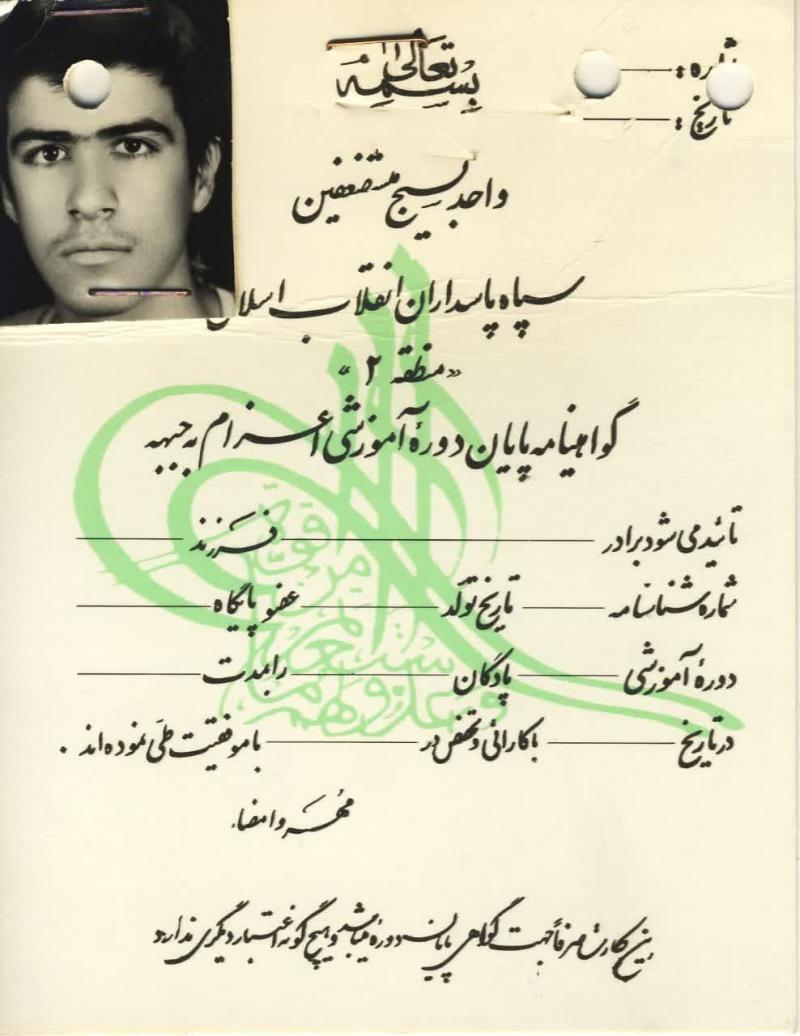 بسمه تعالی
شماره :
تاریخ :
واحد بسیج مستضعفین
سپاه پاسداران انقلاب اسلا
«منطقه ۲»
گواهینامه پایان دورهٔ آموزشی اعزام به جبهه
تائید می شود برادر فرزند
شماره شناسنامه تاریخ تولد عضو پایگاه
دورهٔ آموزشی پادگان را بمدت
در تاریخ با کارائی و تخصص در با موفقیت طی نموده اند .
مهر و امضاء
این کارت صرفاً جهت گواهی پایان دوره میباشد و هیچ گونه اعتبار دیگری ندارد
وَاَعِدّوا لَهُم مَا استَطَعتُم مِن قُوَّة